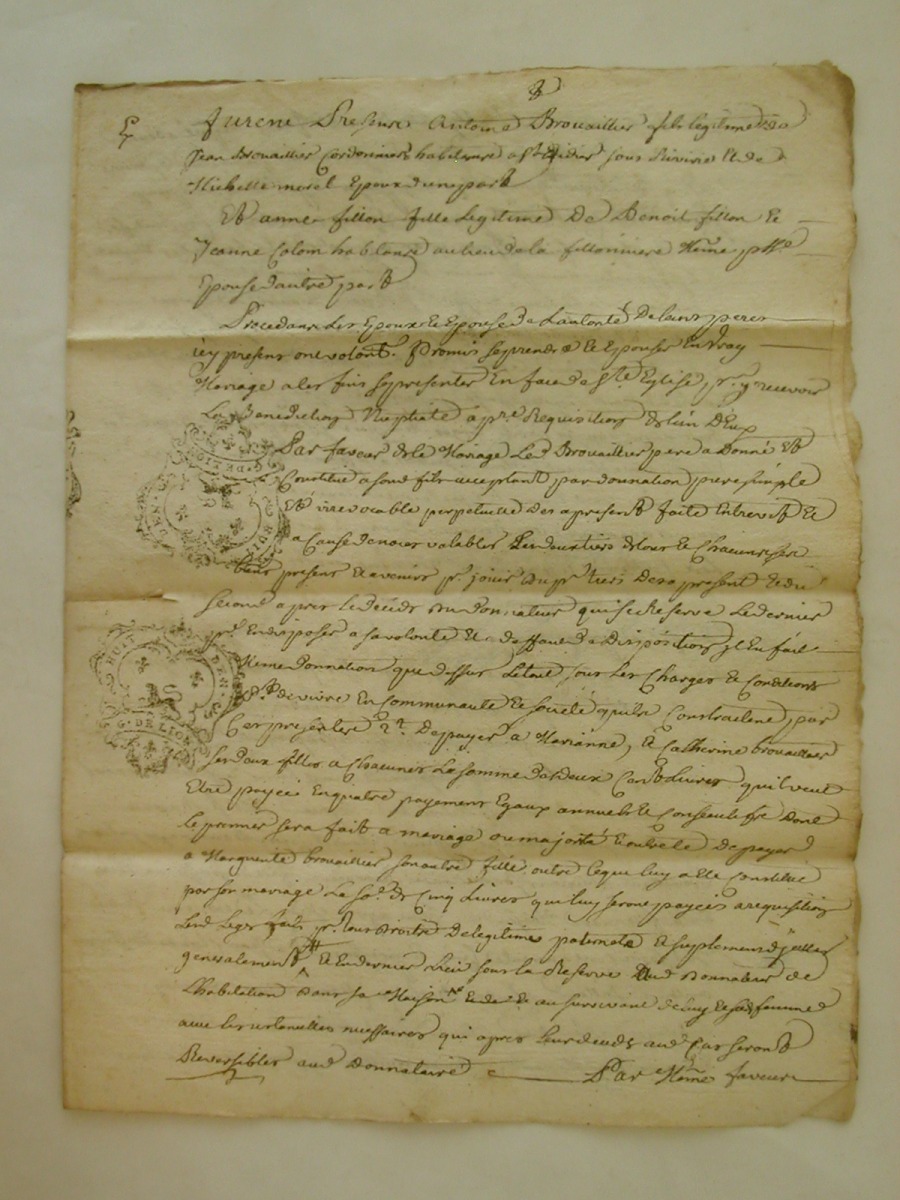 Furent Presents Antoine Brouaillier fils legitime de
Jean Brouaillier Cordonnier habitant a St Didier sous Riverie & de
Michelle morel Epoux d'une part
Et anne fillon fille Legitime De Benoit fillon &
Jeanne Colom habitants au lieu de la fillonniere Meme psse
Epouse d'autre part
Procedants Les Epoux & Epouse de L'autorité De leurs peres
icy presens ont volont.t Promis se prendre & Epouser En vray
Mariage a les fins se presenter En face de Ste Eglise, pr. y recevoir
La Benediction Nuptiale a pre. Requisition de l'un D'Eux
Par faveur de le Mariage Led Brouaillier pere a Donné Et
Constitué a sond fils acceptant par donnation pure simple
Et irrevocable perpetuelle Des a present faite Entrevifs &
a Cause de noces valables Les deux tiers de tous & Chacuns ses
biens presens & avenirs pr. jouir du pr. tiers Des a present & du
second apres le décés du Donnateur qui se Reserve Le dernier
pr. En disposer a sa volonté Et a deffaut de Disposition il En fait
Meme Donnation que dessus Le tout sous Les Charges & Conditions
Pr. de vivre En Communauté & societé qu'ils Contractent par
Ces presentes 2t. De payer a Marianne, & Catherine brouaillier
ses deux filles a Chacunes La somme de Deux Cent Livres qu'il veut
Etre payées En quatre payement Egaux annuels & Consecutifs Dont
Le premier sera fait a mariage ou majorité & outre De payer
a Marguerite brouaillier son autre fille outre ce que luy a eté Constitué
par son mariage La so.e de Cinq Livres qui luy seront payées a requisition
Lesd Legs faits pr. tous Droits De legitime paternele & suplement d'jcelles
generalement & En dernier Lieu sous la Reserve Dud Donnateur de
L'habitation Dans sa Maison & au survivant de luy & sad femme
avec les ustencilles necessaires qui apres Leur decés aud Cas seront
Reversibles aud Donnataire
Par Meme faveur